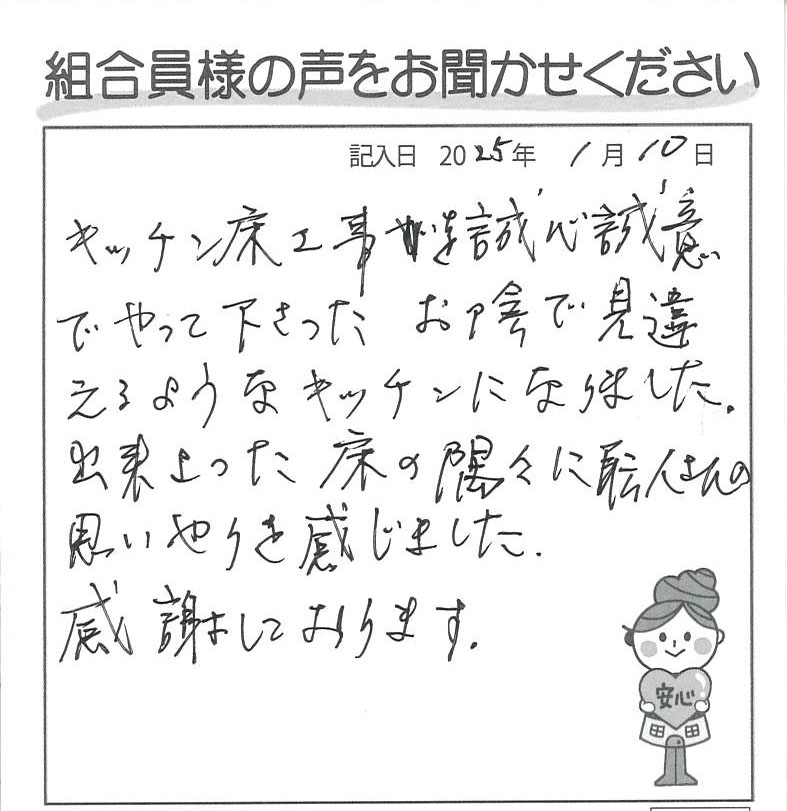 組合員様の声をお聞かせください
記入日 2025年 1月10日
キッチン床工事を誠心誠意
でやって下さった お陰で見違
えるようなキッチンになりました。
出来上った床の隅々に職人さんの
思いやりを感じました.
感謝しております.
安心